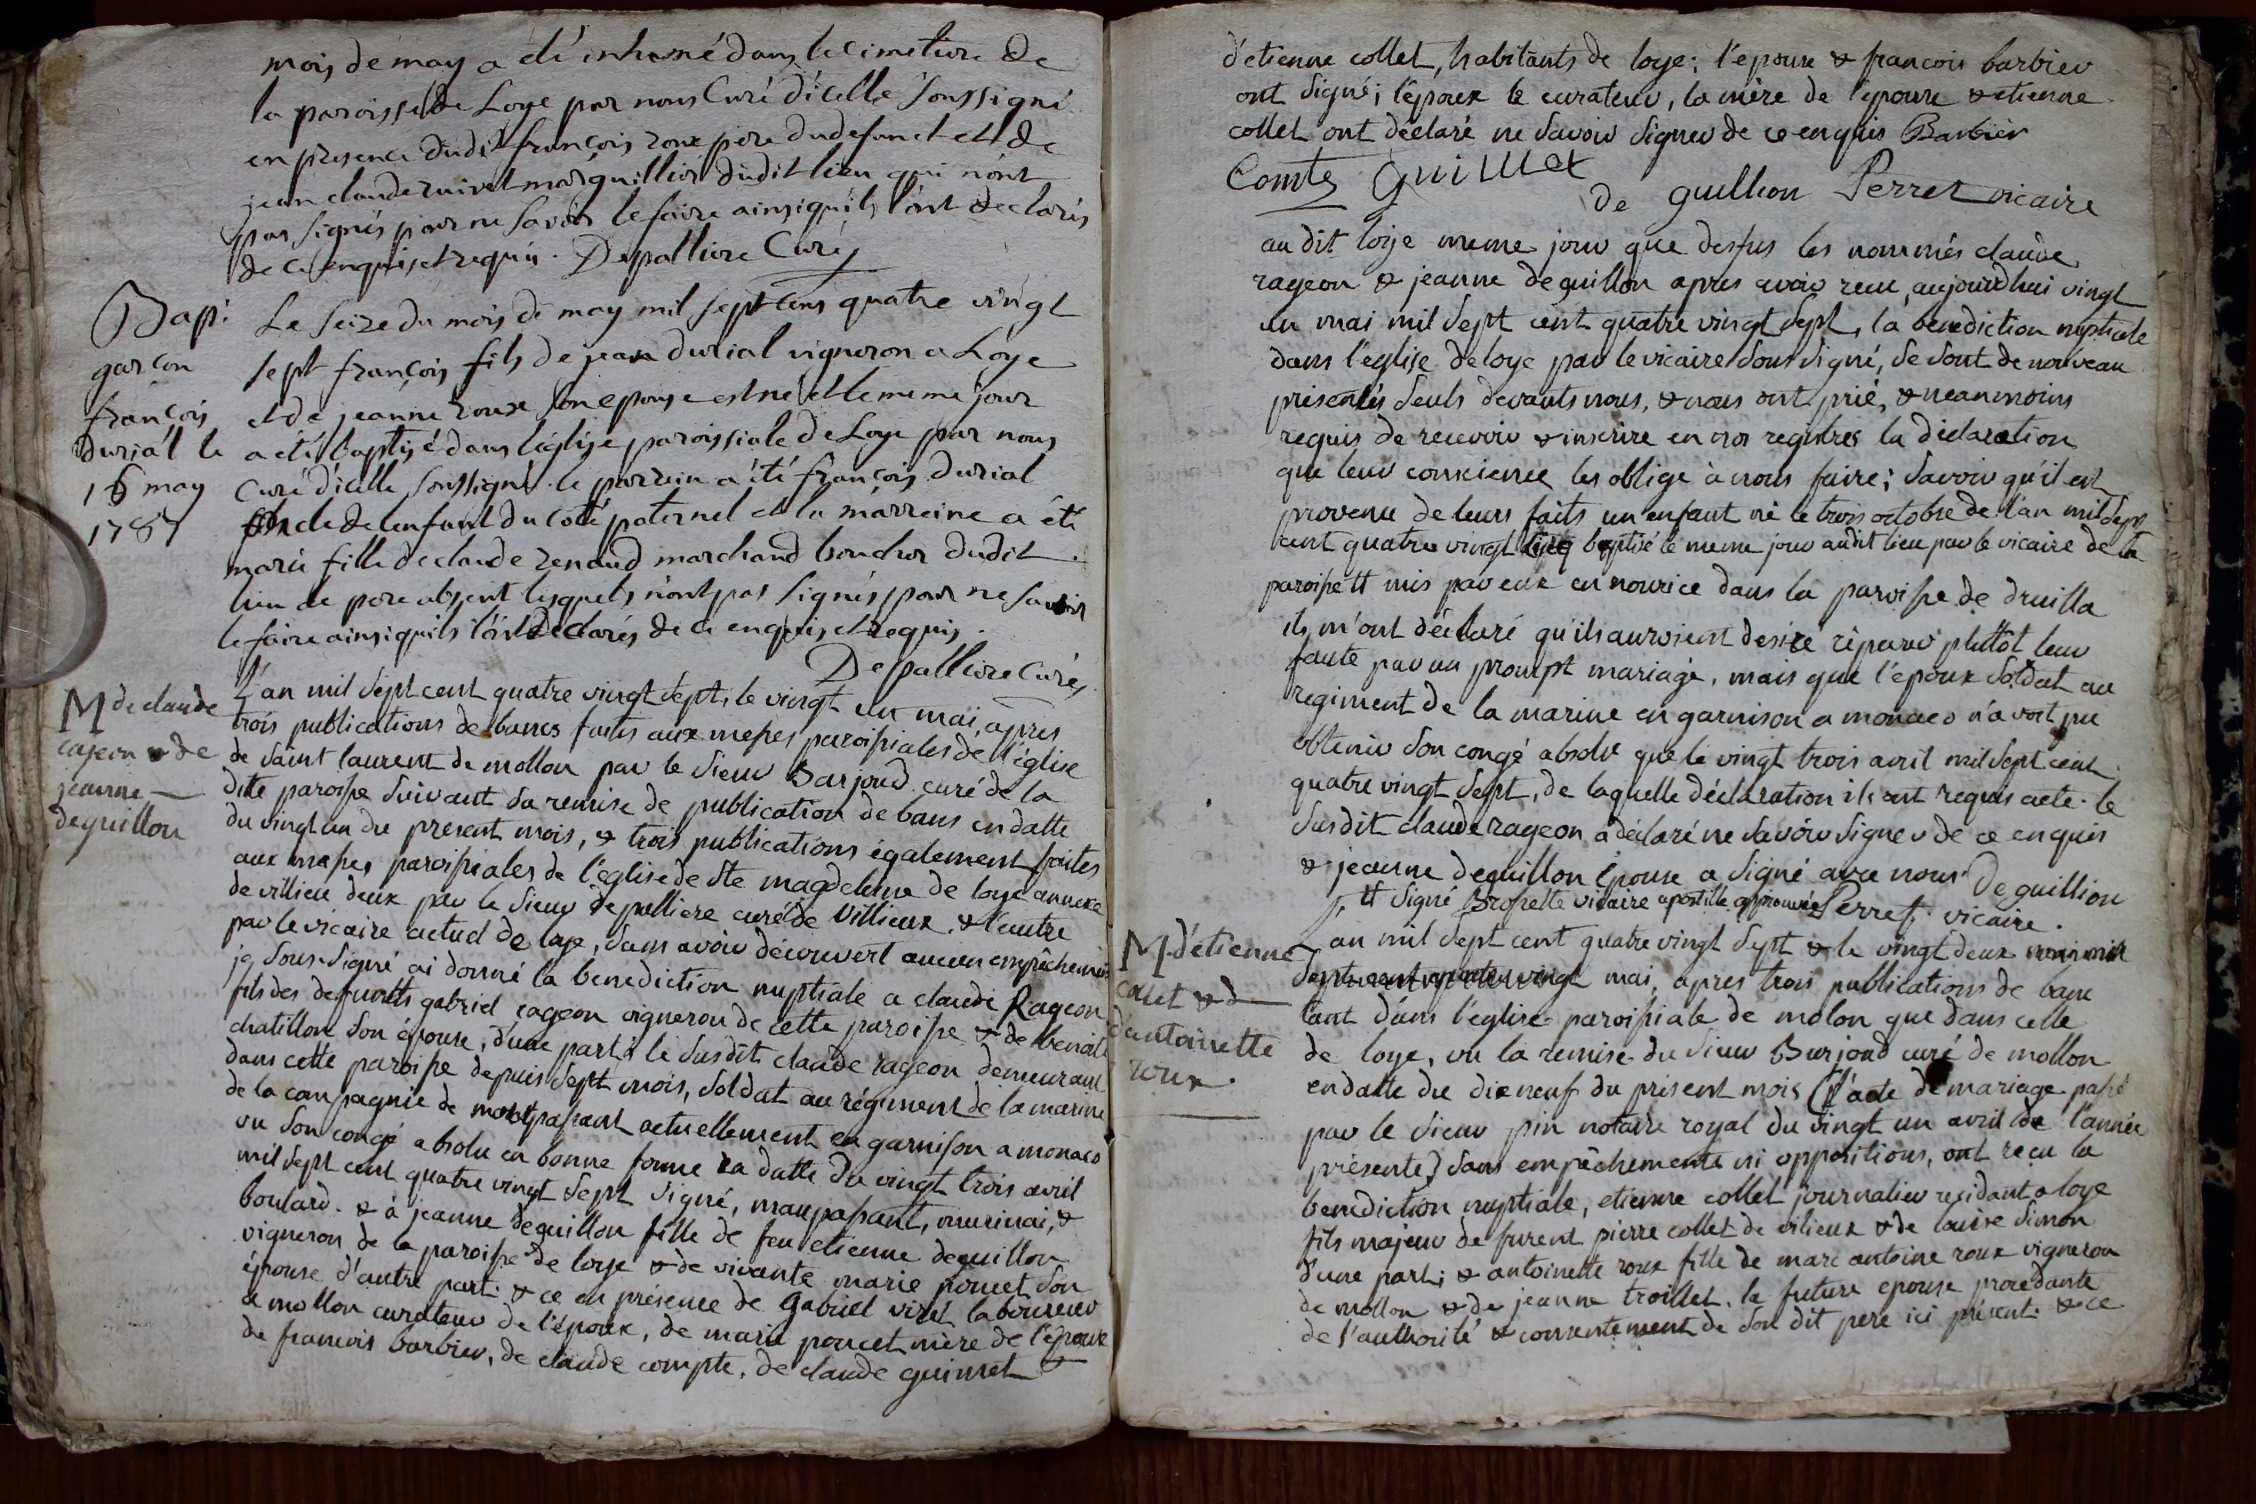 mois de may a été inhumé dans le cimetiere de
la paroisse de Loye par nous Curé d'icelle soussigné
en presence dudit françois roux pere dudefunct et de
jean claude ruivet marguillier dudit lieu qui n'ont
pas signés pour ne savoir le faire ainsi quils l'ont declarés
de ce enquis et requis. Depalliere Curé
Bap:
garcon
françois
durial le
16 may
1787
Le seize du mois de may mil sept cens quatre vingt
sept françois fils de jean durial vigneron a Loye
et de jeanne roux son epouse est né et le meme jour
a été baptisé dans l'église paroissiale de Loye par nous
Curé d'icelle soussigné. le parrain a été françois durial
oncle de lenfant du coté paternel et la marraine a été
marie fille de claude renaud marchand boucher dudit
lieu de pere absent lesquels n'ont pas signés pour ne savoir
le faire ainsi quils l'ont declarés de ce enquis et requis.
Depalliere Curé
M de claude
rageon & de
jeanne
deguillon
L'an mil sept cent quatre vingt sept, le vingt un mai, apres
trois publications de bancs faites aux messes paroissiales de l'église
de saint laurent de mollon par le sieur Barjoud curé de la
dite paroisse suivant sa remise de publication de bans en datte
du vingt un du present mois, & trois publications également faites
aux messes paroissiales de l'église de ste magdeleine de loye annexe
de villieu deux par le sieur depalliere curé de Villieux, & l'autre
par le vicaire actuel de loye, sans avoir découvert aucun empechement
je sous-signé ai donné la benediction nuptiale a claude Rageon
fils des defunts gabriel rageon vigneron de cette paroisse & de benoite
chatillon son épouse, d'une part, le susdit claude rageon demeurant
dans cette paroisse depuis sept mois, soldat au régiment de la marine
de la compagnie de montpassant actuellement en garnison a monaco
vu son congé absolu en bonne forme en datte du vingt trois avril
mil sept cent quatre vingt sept signé, maupassant, murinai, &
boulard. & à jeanne deguillon fille de feu etienne deguillon
vigneron de la paroisse de loye & de vivante marie poncet son
épouse d'autre part. & ce en présence de Gabriel viret laboureur
a mollon curateur de l'époux, de marie poncet mère de l'épouse
de francois barbier, de claude compte, de claude guimet &
d'etienne collet, habitants de loye; l'épouse & francois barbier
ont signé; l'époux le curateur, la mère de l'épouse & etienne
collet ont déclaré ne savoir signer de ce enquis Barbier
Comte Guillet
de guillion Perret vicaire
au dit loye meme jour que dessus les nommés claude
rageon & jeanne deguillon apres avoir recu, aujourdhui vingt
un mai mil sept cent quatre vingt sept, la benediction nuptiale
dans l'église de loye par le vicaire sous signé, se sont de nouveau
présentés seuls devants nous, & nous ont prié, & neanmoins
requis de recevoir & inscrire en nos registres la déclaration
que leur conscience les oblige à nous faire; savoir qu'il est
provenu de leurs faits un enfant né le trois octobre de l'an mil sept
cent quatre vingt cinq baptisé le meme jour audit lieu par le vicaire de la
paroisse # mis par eux en nourice dans la paroisse de druilla
ils m'ont déclaré qu'ils auroient desiré réparer plutôt leur
faute par un prompt mariage, mais que l'époux soldat au
regiment de la marine en garnison a monaco n'avoit pu
obtenir son congé absolu que le vingt trois avril mil sept cent
quatre vingt sept, de laquelle déclaration ils ont requis acte. le
susdit claude rageon a déclaré ne savoir signer de ce enquis
& jeanne deguillon épouse a signé avec nous De guillion
# signé Brossette vicaire apostille approuvée Perret vicaire.
M. d'etienne
collet & d
d'antoinette
roux.
L'an mil sept cent quatre vingt sept & le vingt deux mai mil
sept cent quatre vingt mai, apres trois publications de banc
tant dans l'église paroissiale de molon que dans celle
de loye, vu la remise du sieur Burjoud curé de mollon
en datte du dix neuf du présent mois (l'acte de mariage passé
par le sieur pin notaire royal du vingt un avril de l'année
présente) sans empêchements ni oppositions, ont reçu la
benediction nuptiale, etienne collet journalier residant a loye
fils majeur de furent pierre collet de vilieux & de louise simon
d'une part; & antoinette roux fille de marc antoine roux vigneron
de mollon & de jeanne troillet. la future epouse procedante
de l'authorité & consentement de son dit pere ici présent. & ce